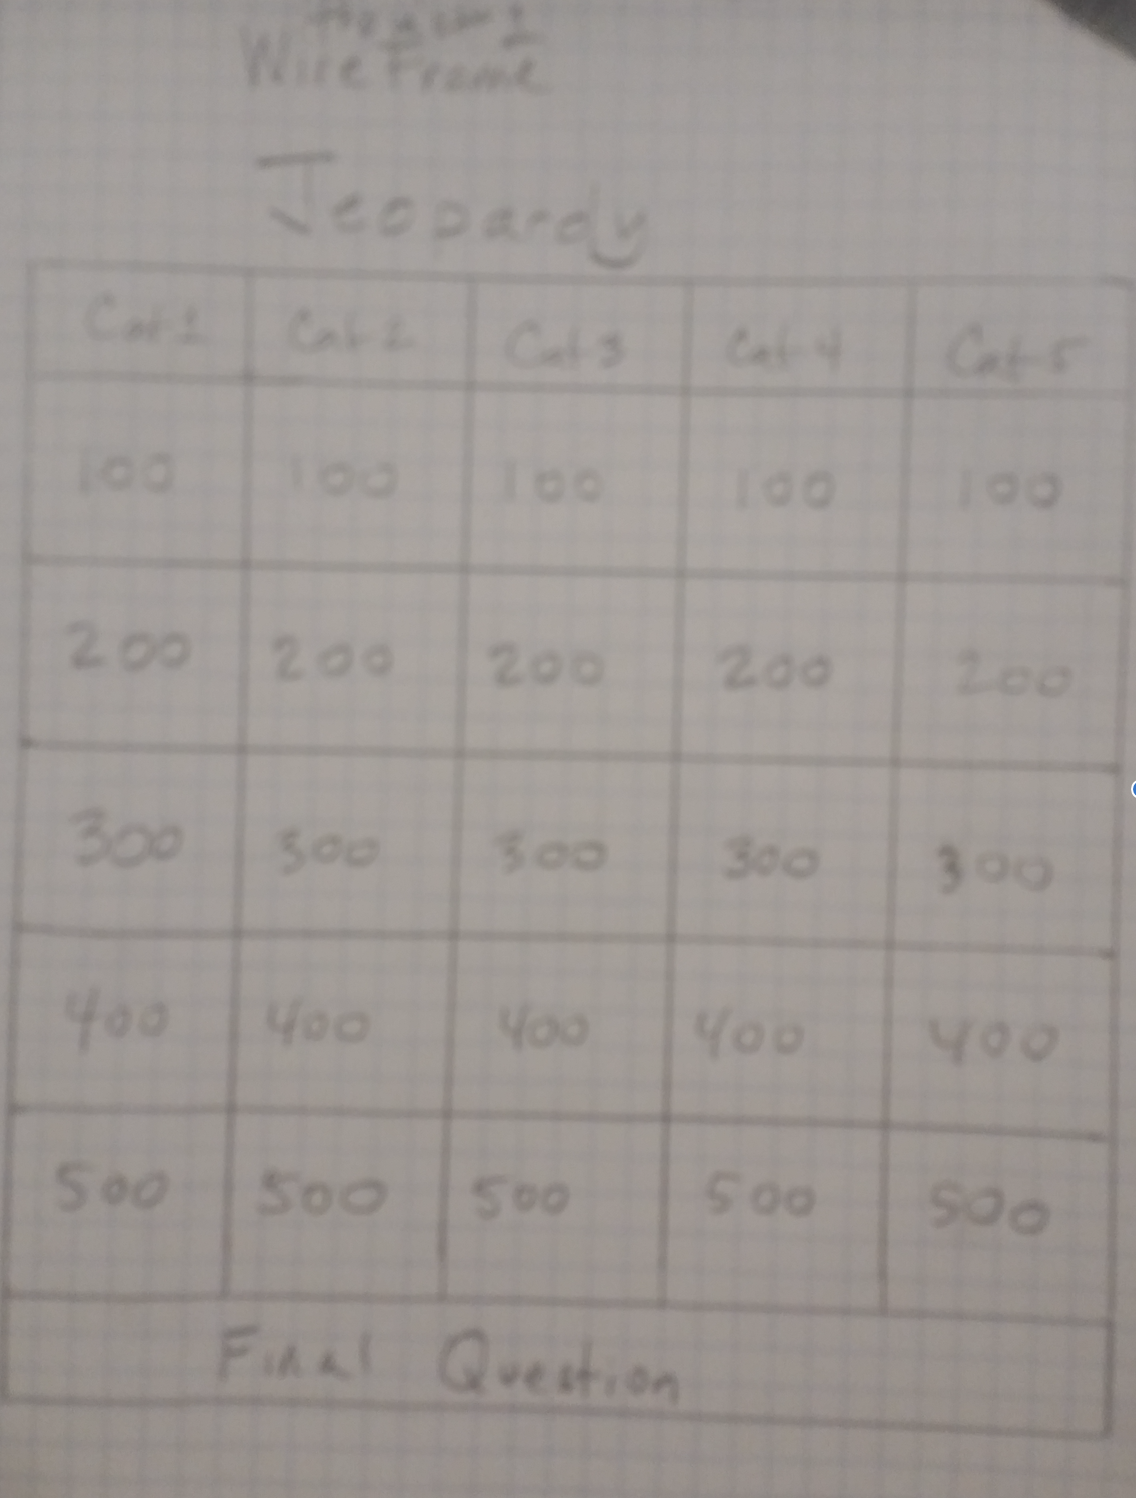 Wire Frame
Jeopardy
Cat 1 Cat 2 Cat 3 Cat 4 Cat 5
100 100 100 100 100
200 200 200 200 200
300 300 300 300 300
400 400 400 400 400
500 500 500 500 500
Final Question